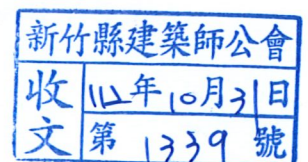 新竹縣建築師公會
收文
112年10月31日
第1339號